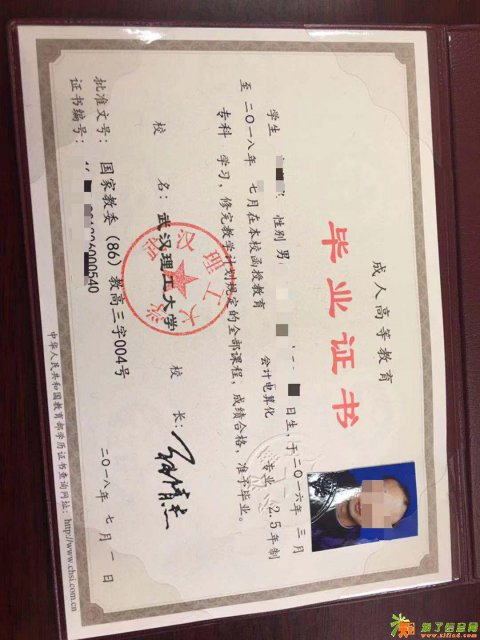 成人高等教育
毕业证书
学生 性别 男, 日生,于二〇一六年 三月
至二〇一八年 七月在本校函授教育 会计电算化 专业 2.5年制
专科 学习,修完教学计划规定的全部课程,成绩合格,准予毕业。
校 名:武汉理工大学 校 长:
武汉理工大学
批准文号:国家教委(86)教高三字004号
证书编号: 06000540
二〇一八年 七月 一日
中华人民共和国教育部学历证书查询网址:http://www.chsi.com.cn